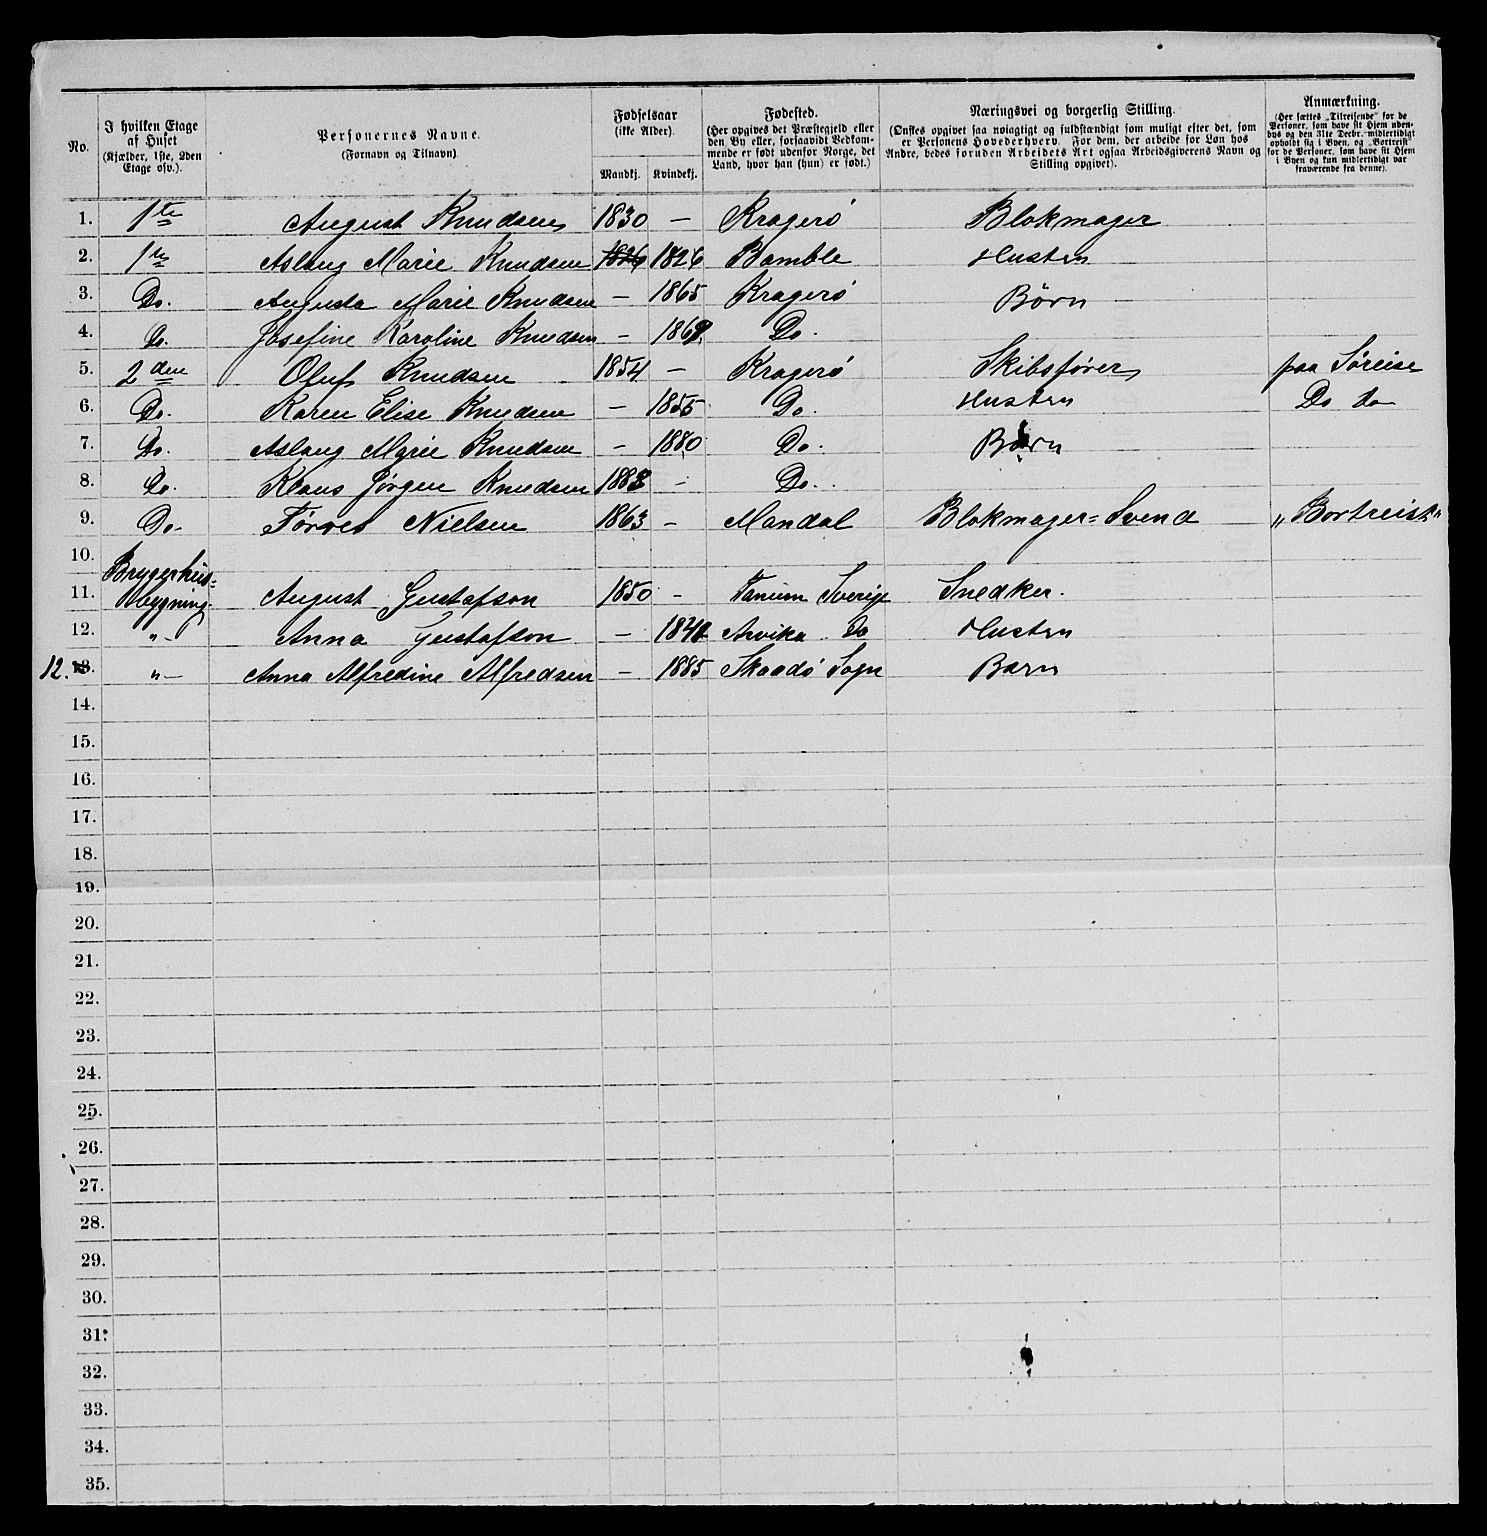 No. | I hvilken Etage af Huset (Kjælder, 1ste, 2den Etage osv.). | Personernes Navne. (Fornavn og Tilnavn) | Fødselsaar (ikke Alder). Mandkj. | Kvindekj. | Fødested. (Her opgives det Præstegjeld eller den By eller, forsaavidt Vedkommende er født udenfor Norge, det Land, hvor han (hun) er født.) | Næringsvei og borgerlig Stilling. (Ønskes opgivet saa nøiagtigt og fuldstændigt som muligt efter det, som er Personens Hovederhverv. For dem, der arbeide for Løn hos Andre, bedes foruden Arbeidets Art ogsaa Arbeidsgiverens Navn og Stilling opgivet). | Anmærkning. (Her sættes „Tilreisende“ for de Personer, som have sit Hjem udenbys og den 31te Decbr. midlertidigt opholdt sig i Byen, og „Bortreist“ for de Personer, som have sit Hjem i Byen og kun midlertidigt var fraværende fra denne).
1. 1te August Knudsen 1830 – Kragerø Blokmager
2. 1te Aslaug Marie Knudsen 1826 1826 Bamble Hustru
3. Do. Augusta Marie Knudsen – 1865 Kragerø Børn
4. Do. Josefine Karoline Knudsen – Do.
5. 2den Oluf Knudsen 1854 – Kragerø Skibsfører paa Søreise
6. Do. Karen Elise Knudsen – 1855 Do. Hustru Do do
7. Do. Aslaug Marie Knudsen – 1880 Do. Børn
8. Do. Klaus Jørgen Knudsen – Do.
9. Do. Nielsen 1863 – Mandal Blokmager=Svend „Bortreist“
10. Bryggerhus=
11. bygning. August Gustafson 1850 – Tanum Sverige Snedker.
12. „– Anna Gustafson – Arvika Do Hustru
12. 13. „– Anna Alfredine Alfredsen – 1885 Skaadø Sogn Barn
14.
15.
16.
17.
18.
19.
20.
21.
22.
23.
24.
25.
26.
27.
28.
29.
30.
31.
32.
33.
34.
35.